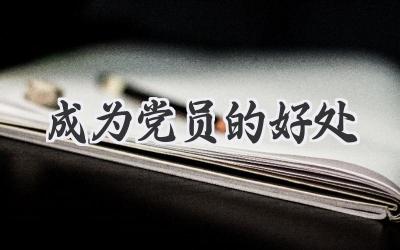 成为党员的好处